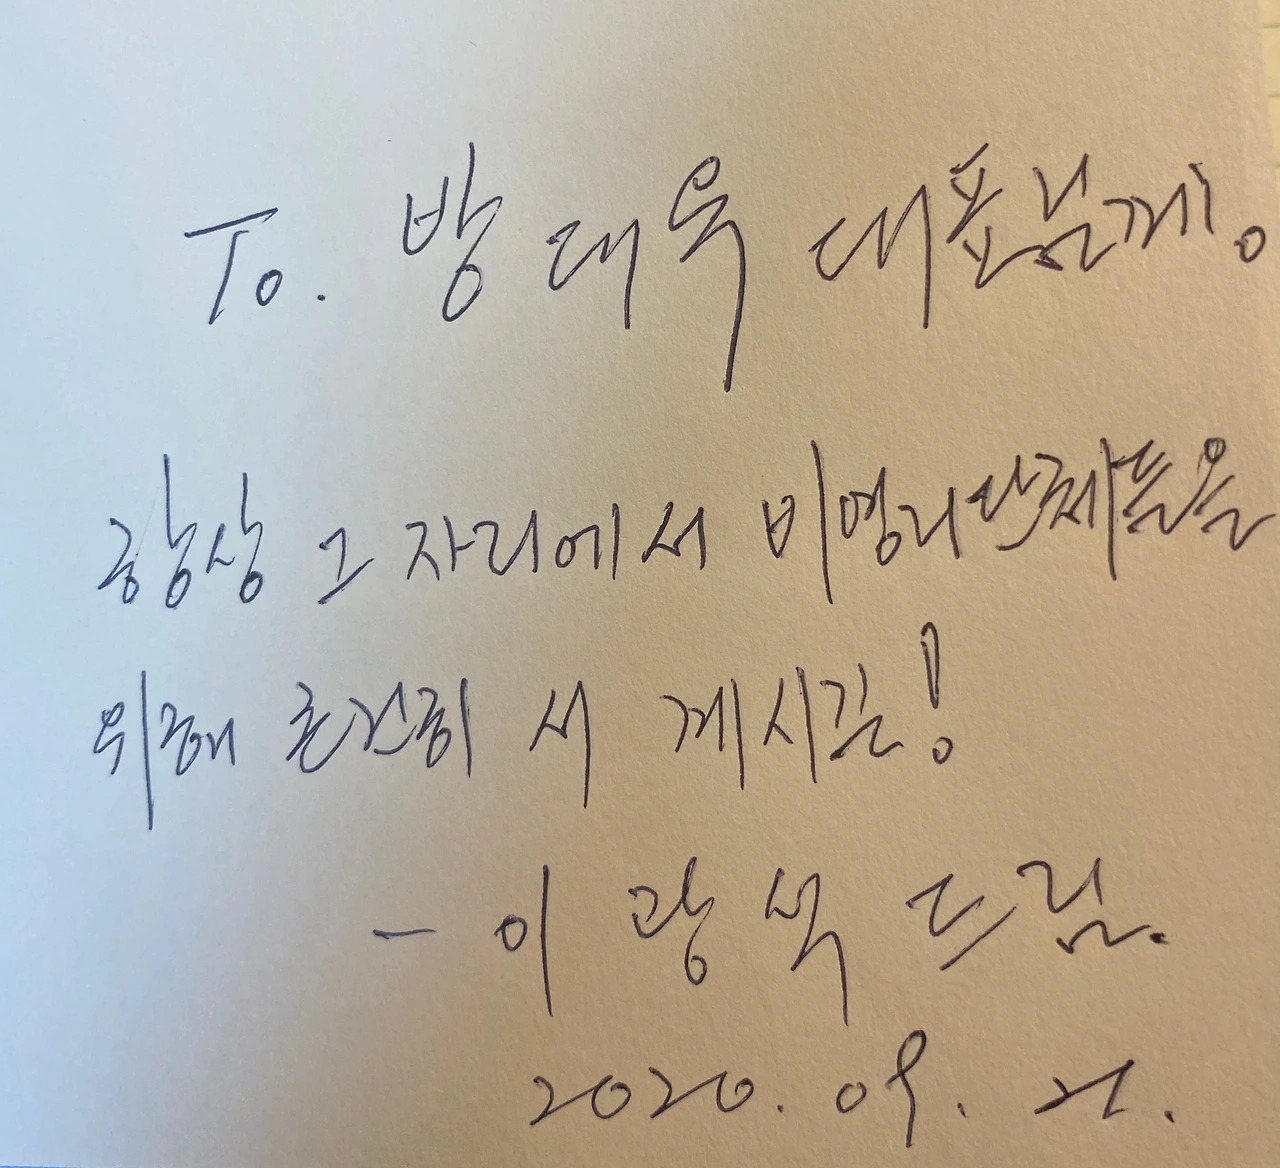 To. 방대욱 대표님께。
항상 그 자리에서 비영리단체들을
위해 존건히 서 계시길!
- 이 광 석 드림.
2020. 09. 21.